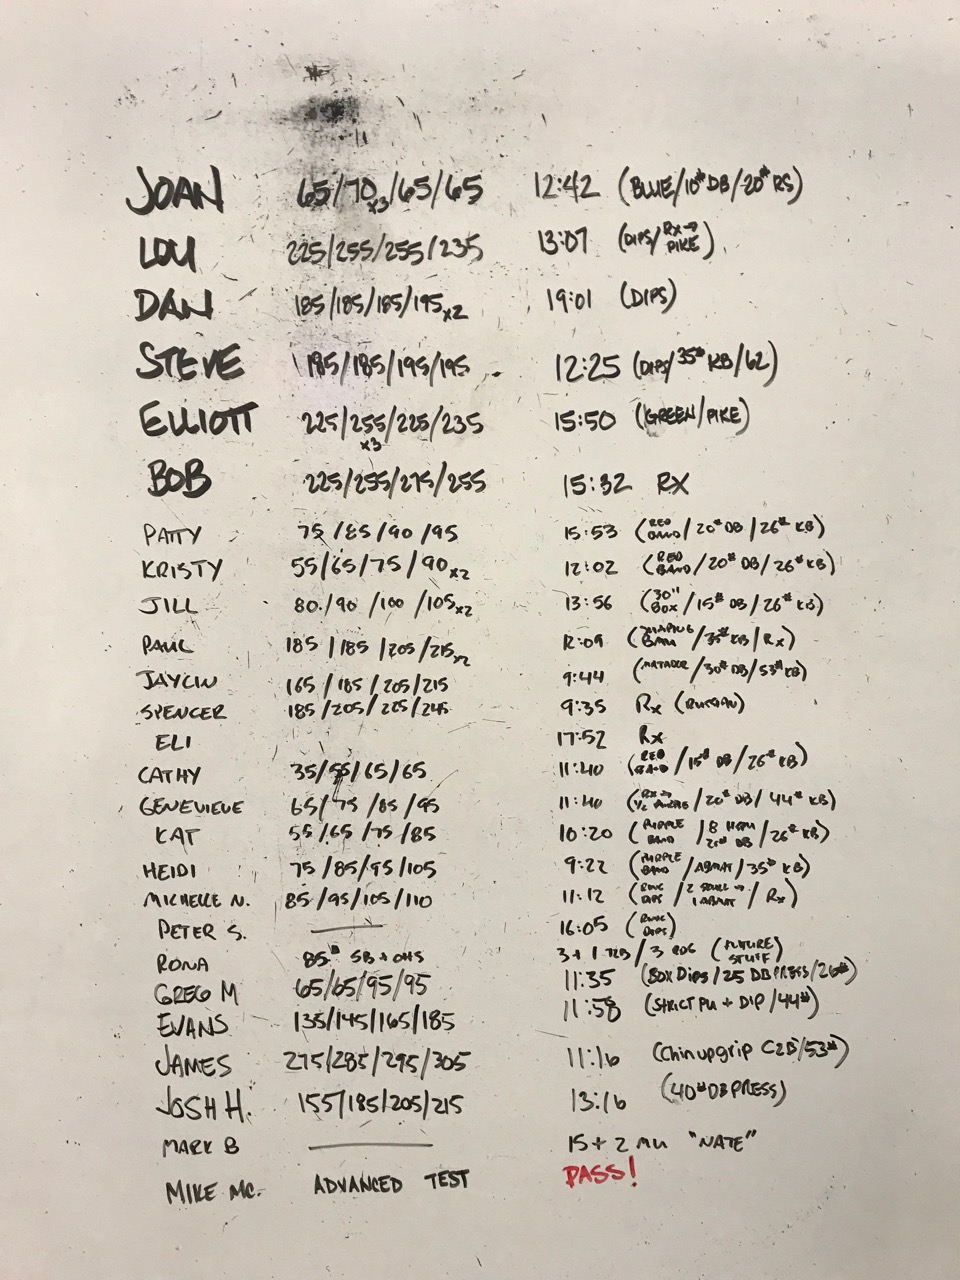 JOAN 65/70x3/65/65 12:42 (BLUE/10# DB/20# RS)
LOU 225/255/255/235 13:07 (DIPS/RX→ PIKE)
DAN 185/185/185/195x2 19:01 (DIPS)
STEVE 185/185/195/195 12:25 (DIPS/35# KB/62)
ELLIOTT 225/255x3/225/235 15:50 (GREEN/PIKE)
BOB 225/255/275/255 15:32 RX
PATTY 75/85/90/95 15:53 (RED BAND/20# DB/26# KB)
KRISTY 55/65/75/90x2 12:02 (RED BAND/20# DB/26# KB)
JILL 80/90/100/105x2 13:56 (30" BOX/15# DB/26# KB)
PAUL 185/185/205/215x2 12:09 (JUMPING/35# KB/RX)
JAYLIN 165/185/205/215 9:44 (MATADOR/30# DB/53# KB)
SPENCER 185/205/225/245 9:35 Rx (RUSSIAN)
ELI 17:52 Rx
CATHY 35/55/65/65 11:40 (RED BAND/15# DB/26# KB)
GENEVIEVE 65/75/85/95 11:40 (RX→ 1/2/20# DB/44# KB)
KAT 55/65/75/85 10:20 (PURPLE BAND/8 HSPU 20# DB/26# KB)
HEIDI 75/85/95/105 9:22 (PURPLE BAND/ABMAT/35# KB)
MICHELLE N. 85/95/105/110 11:12 (RING DIPS/2 SMALL→ 1 ABMAT/Rx)
PETER S. 16:05 (RING DIPS)
RONA 85# SB + OHS 3+1 T2B/3 RDS (FUTURE STUFF)
GREG M 65/65/95/95 11:35 (BOX DIPS/25 DB PRESS/26#)
EVANS 135/145/165/185 11:58 (STRICT PU + DIP/44#)
JAMES 275/285/295/305 11:16 (Chinupgrip C2B/53#)
JOSH H. 155/185/205/215 13:16 (40# DB PRESS)
MARK B 15 + 2 MU "NATE"
MIKE MC. ADVANCED TEST PASS!